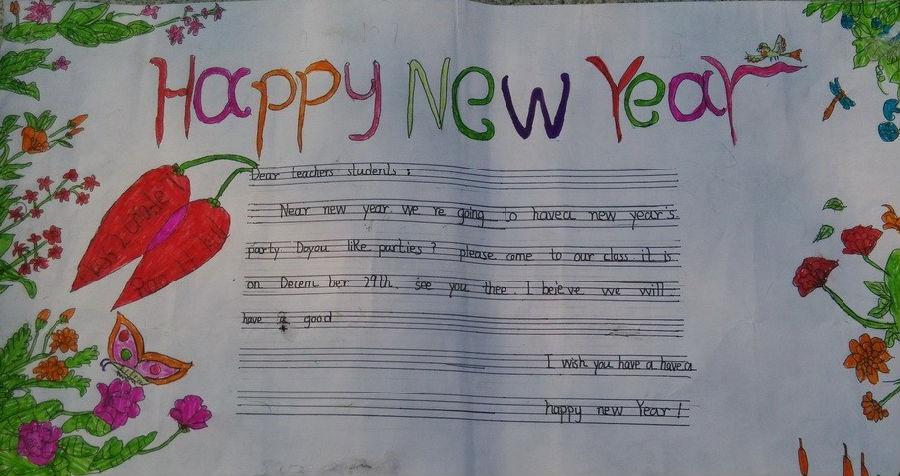 Happy New Year
Dear teachers students :
Near new year we re going to havea new year's
party. Doyou like parties? please come to our class it is
on Decem ber 29th. see you thee. I beie ve we will
have a good
I wish you have a havea
happy new Year!